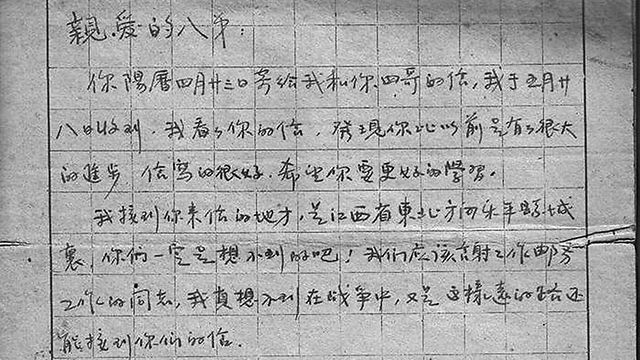 親爱的八弟：
你陽曆四月廿三日寄給我和你四哥的信，我于五月廿
八日收到．我看了你的信，發現你比以前是有了很大
的進步 信寫的很好．希望你要更好的學習．
我接到你来信的地方，是江西省東北方向乐平縣城
裏，你們一定是想不到的吧！我们应该謝謝作邮务
工作的同志，我真想不到在战争中，又是这樣遠的路还
能接到你们的信．